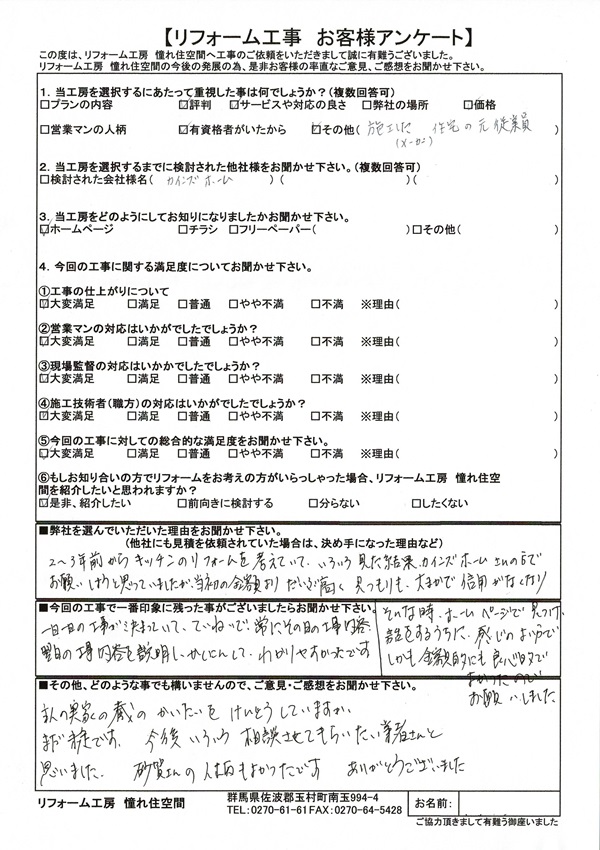 【リフォーム工事　お客様アンケート】
この度は、リフォーム工房　憧れ住空間へ工事のご依頼をいただきまして誠に有難うございました。
リフォーム工房　憧れ住空間の今後の発展の為、是非お客様の率直なご意見、ご感想をお聞かせ下さい。
1．当工房を選択するにあたって重視した事は何でしょうか？（複数回答可）
□プランの内容　☑評判　☑サービスや対応の良さ　□弊社の場所　□価格
□営業マンの人柄　☑有資格者がいたから　☑その他（施工した　住宅の元従業員
（メーカー）　）
2．当工房を選択するまでに検討された他社様をお聞かせ下さい。（複数回答可）
□検討された会社様名（　カインズホーム　）（　）（　）
3．当工房をどのようにしてお知りになりましたかお聞かせ下さい。
☑ホームページ　□チラシ　□フリーペーパー（　）□その他（　）
4．今回の工事に関する満足度についてお聞かせ下さい。
①工事の仕上がりについて
☑大変満足　□満足　□普通　□やや不満　□不満　※理由（　）
②営業マンの対応はいかがでしたでしょうか？
☑大変満足　□満足　□普通　□やや不満　□不満　※理由（　）
③現場監督の対応はいかかでしたでしょうか？
☑大変満足　□満足　□普通　□やや不満　□不満　※理由（　）
④施工技術者（職方）の対応はいかがでしたでしょうか？
☑大変満足　□満足　□普通　□やや不満　□不満　※理由（　）
⑤今回の工事に対しての総合的な満足度をお聞かせ下さい。
☑大変満足　□満足　□普通　□やや不満　□不満　※理由（　）
⑥もしお知り合いの方でリフォームをお考えの方がいらっしゃった場合、リフォーム工房　憧れ住空
間を紹介したいと思われますか？
☑是非、紹介したい　□前向きに検討する　□分らない　□したくない
■弊社を選んでいただいた理由をお聞かせ下さい。
（他社にも見積を依頼されていた場合は、決め手になった理由など）
2〜3年前からキッチンのリフォームを考えていて、いろいろ見た結果、カインズホームさんの方で
お願いしようと思っていましたが、当初の金額よりだいぶ高く見つもりも、大まかで信用がなくなり
そんな時、ホームページで見つけ
話をするうちに、感じのよい方で
しかも金額的にも良心的で
よかったので
お願いしました
■今回の工事で一番印象に残った事がございましたらお聞かせ下さい。
一日一日の工事が決まっていて、ていねいで、常にその日の工事内容
翌日の工事内容を説明し、かくにんして、わかりやすかったです
■その他、どのような事でも構いませんので、ご意見・ご感想をお聞かせ下さい。
の実家の蔵のかいたいをけんとうしていますが、
まだ未定です。　今後いろいろ相談させてもらいたい業者さんと
思いました。　砂賀さんの人柄もよかったです　ありがとうございました
リフォーム工房　憧れ住空間
群馬県佐波郡玉村町南玉994-4
TEL：0270-61-61FAX：0270-64-5428
お名前：
ご協力頂きまして有難う御座いました